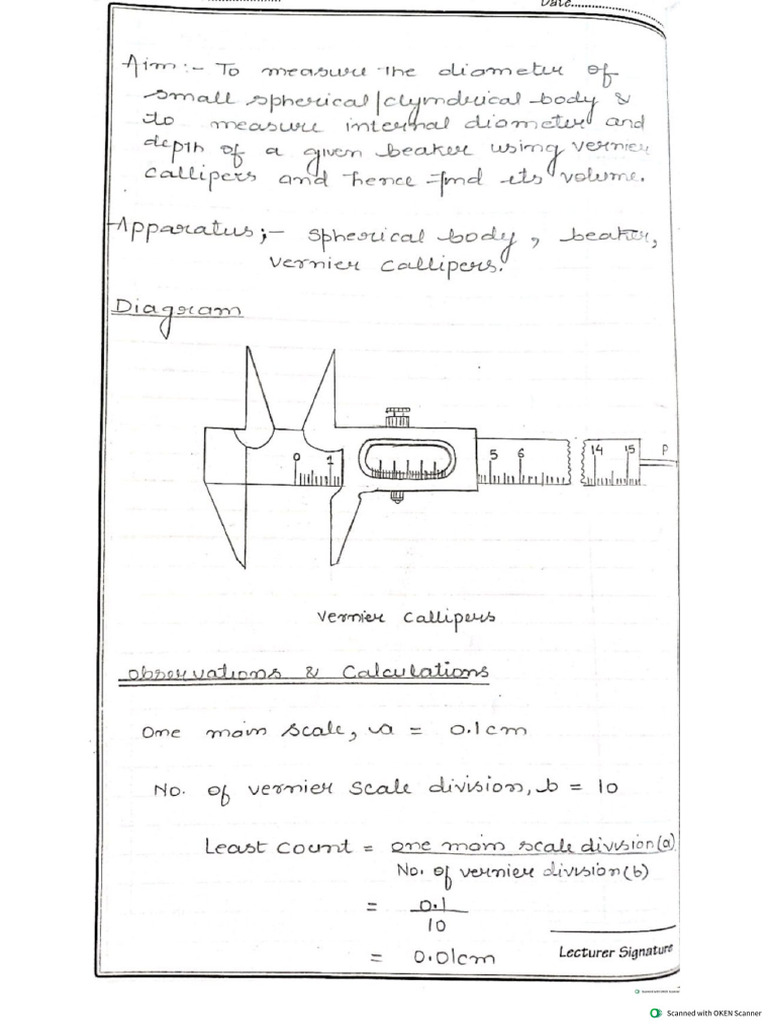 Date..................
Aim:- To measure the diameter of
small spherical/clymdrical body &
to measure internal diameter and
depth of a given beaker using vernier
callipers and hence find its volume.
Apparatus;- spherical body, beaker,
vernier callipers.
Diagram
0 1 5 6 14 15 P
vernier callipers
observations & Calculations
One main scale, a = 0.1cm
No. of vernier scale division, b = 10
Least count = one main scale division(a)
No. of vernier division(b)
= 0.1
10
= 0.01cm
Lecturer Signature
Scanned with OKEN Scanner
Scanned with OKEN Scanner